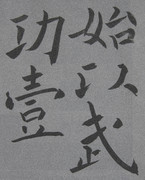 始以武
功壹